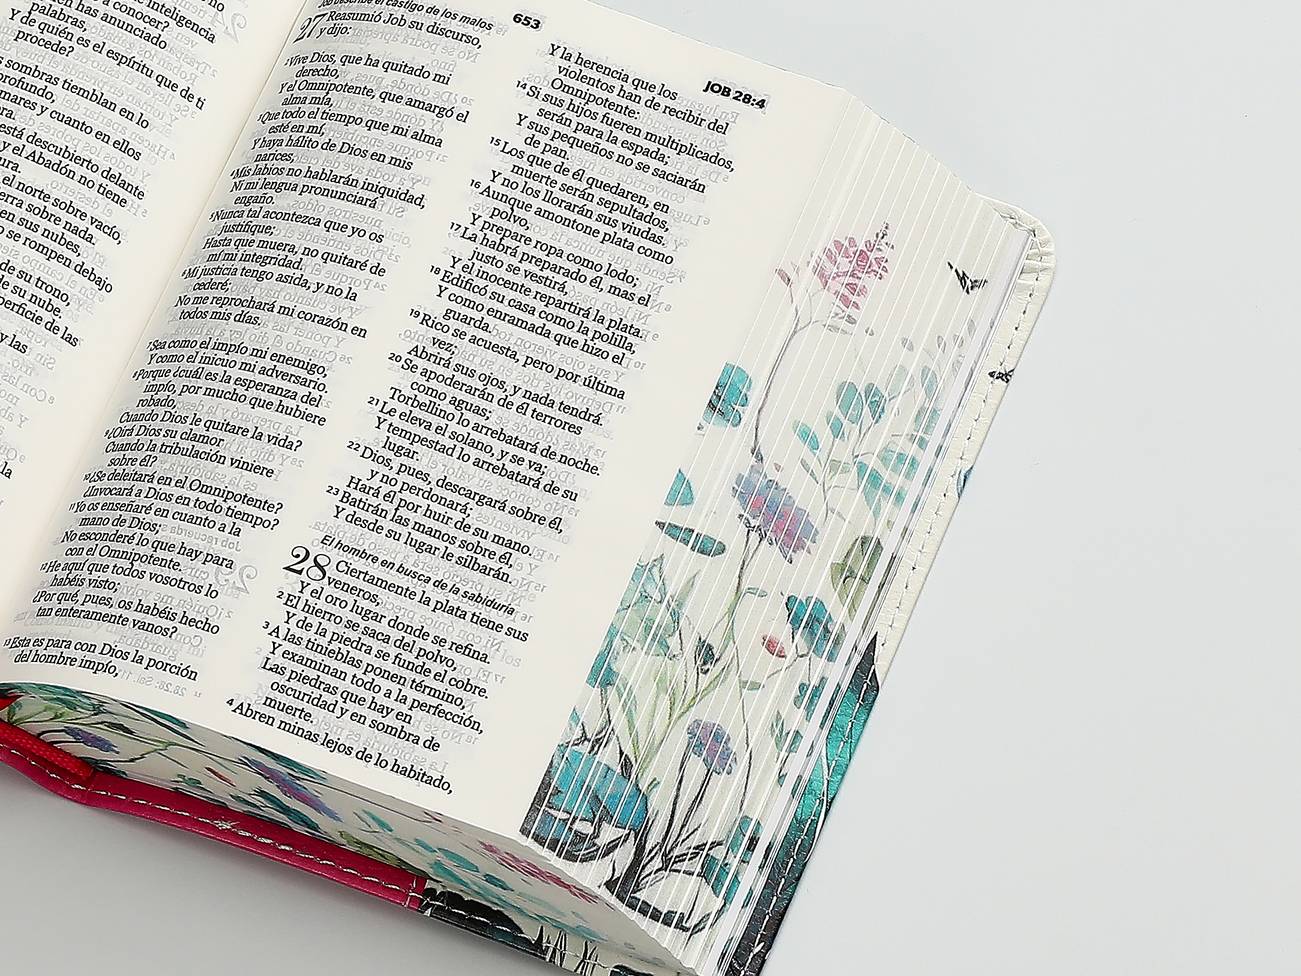 conocer?
inteligencia
has anunciado
Y de quién es el espíritu que de ti
procede?
sombras tiemblan en lo
profundo,
mares y cuanto en ellos
está descubierto delante
y el Abadón no tiene
el norte sobre vacío,
sobre nada.
en sus nubes,
se rompen debajo
de su trono,
de su nube.
de las
y las
la
describe el castigo de los malos
27 Reasumió Job su discurso,
y dijo:
2 Vive Dios, que ha quitado mi
derecho,
Y el Omnipotente, que amargó el
alma mía,
3 Que todo el tiempo que mi alma
esté en mí,
Y haya hálito de Dios en mis
narices,
4 Mis labios no hablarán iniquidad,
Ni mi lengua pronunciará
engaño.
5 Nunca tal acontezca que yo os
justifique;
Hasta que muera, no quitaré de
mí mi integridad.
6 Mi justicia tengo asida, y no la
cederé;
No me reprochará mi corazón en
todos mis días.
7 Sea como el impío mi enemigo,
Y como el inicuo mi adversario.
8 Porque ¿cuál es la esperanza del
impío, por mucho que hubiere
robado,
Cuando Dios le quitare la vida?
9 ¿Oirá Dios su clamor
Cuando la tribulación viniere
sobre él?
10 ¿Se deleitará en el Omnipotente?
¿Invocará a Dios en todo tiempo?
11 Yo os enseñaré en cuanto a la
mano de Dios;
No esconderé lo que hay para
con el Omnipotente.
12 He aquí que todos vosotros lo
habéis visto;
¿Por qué, pues, os habéis hecho
tan enteramente vanos?
13 Esta es para con Dios la porción
del hombre impío,
653
JOB 28:4
Y la herencia que los
violentos han de recibir del
Omnipotente:
14 Si sus hijos fueren multiplicados,
serán para la espada;
Y sus pequeños no se saciarán
de pan.
15 Los que de él quedaren, en
muerte serán sepultados,
Y no los llorarán sus viudas.
16 Aunque amontone plata como
polvo,
Y prepare ropa como lodo;
17 La habrá preparado él, mas el
justo se vestirá,
Y el inocente repartirá la plata.
18 Edificó su casa como la polilla,
Y como enramada que hizo el
guarda.
19 Rico se acuesta, pero por última
vez;
Abrirá sus ojos, y nada tendrá.
20 Se apoderarán de él terrores
como aguas;
Torbellino lo arrebatará de noche.
21 Le eleva el solano, y se va;
Y tempestad lo arrebatará de su
lugar.
22 Dios, pues, descargará sobre él,
y no perdonará;
Hará él por huir de su mano.
23 Batirán las manos sobre él,
Y desde su lugar le silbarán.
El hombre en busca de la sabiduría
28 Ciertamente la plata tiene sus
veneros,
Y el oro lugar donde se refina.
2 El hierro se saca del polvo,
Y de la piedra se funde el cobre.
3 A las tinieblas ponen término,
Y examinan todo a la perfección,
Las piedras que hay en
oscuridad y en sombra de
muerte.
4 Abren minas lejos de lo habitado,